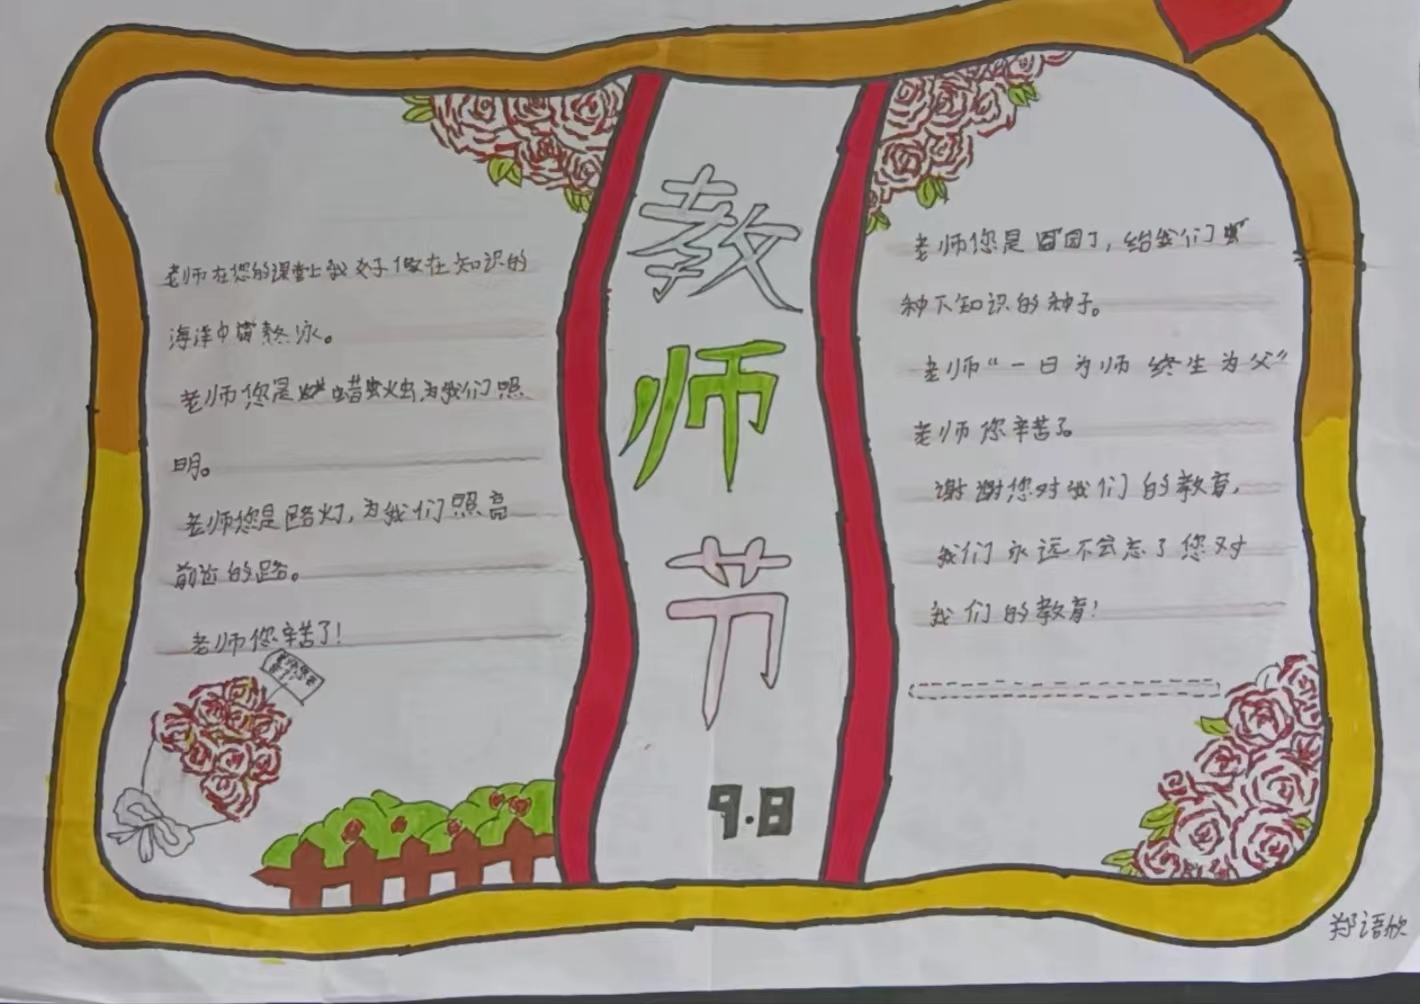 老师在您的课堂上我好像在知识的
海洋中遨游。
老师您是蜡烛为我们照
明。
老师您是路灯,为我们照亮
前进的路。
老师您辛苦了!
教
师
节
9.8
老师您是园丁,给我们
种下知识的种子。
老师“一日为师 终生为父”
老师您辛苦了。
谢谢您对我们的教育,
我们永远不会忘了您对
我们的教育!
郑语欣